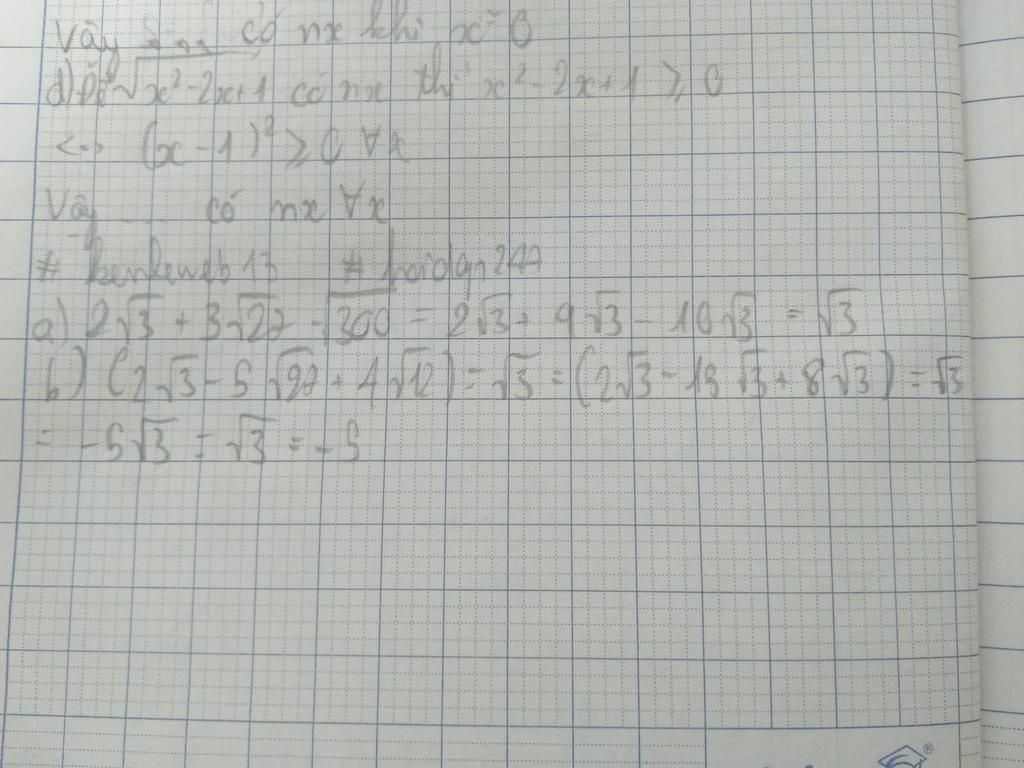 Vậy ... có nx khi x = 0
d) Để √x²-2x+1 có nx thì x²-2x+1 ≥ 0
<=> (x-1)² ≥ 0 ∀x
Vậy ... có nx ∀x
# kenkeweb13 # hoidap247
a) 2√3 + 3√27 - √300 = 2√3 + 9√3 - 10√3 = √3
b) (2√3 - 5√27 + 4√12) : √3 = (2√3 - 15√3 + 8√3) : √3
= -5√3 : √3 = -5
®